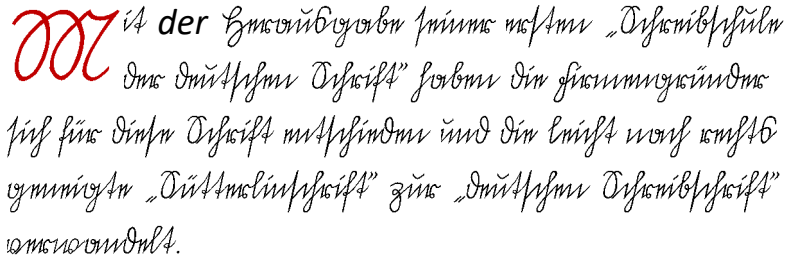 Mit der Herausgabe seiner ersten „Schreibschule
der deutschen Schrift” haben die Firmengründer
sich für diese Schrift entschieden und die leicht nach rechts
geneigte „Sütterlinschrift” zur „deutschen Schreibschrift”
verwandelt.